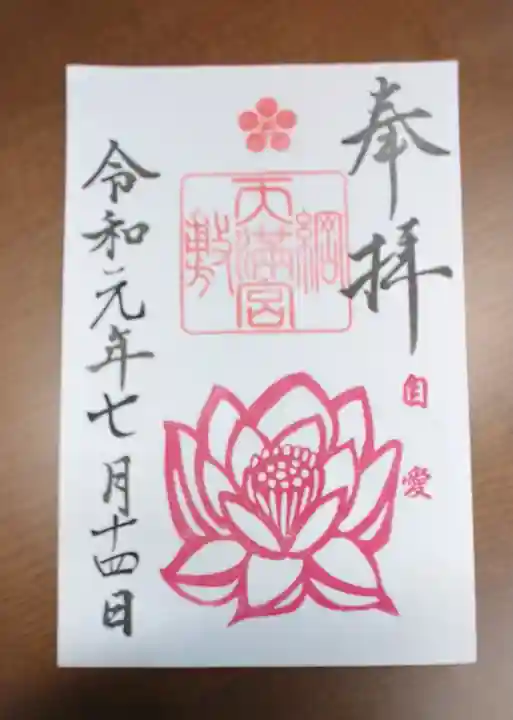 奉拝
自愛
綱敷天満宮
令和元年七月十四日